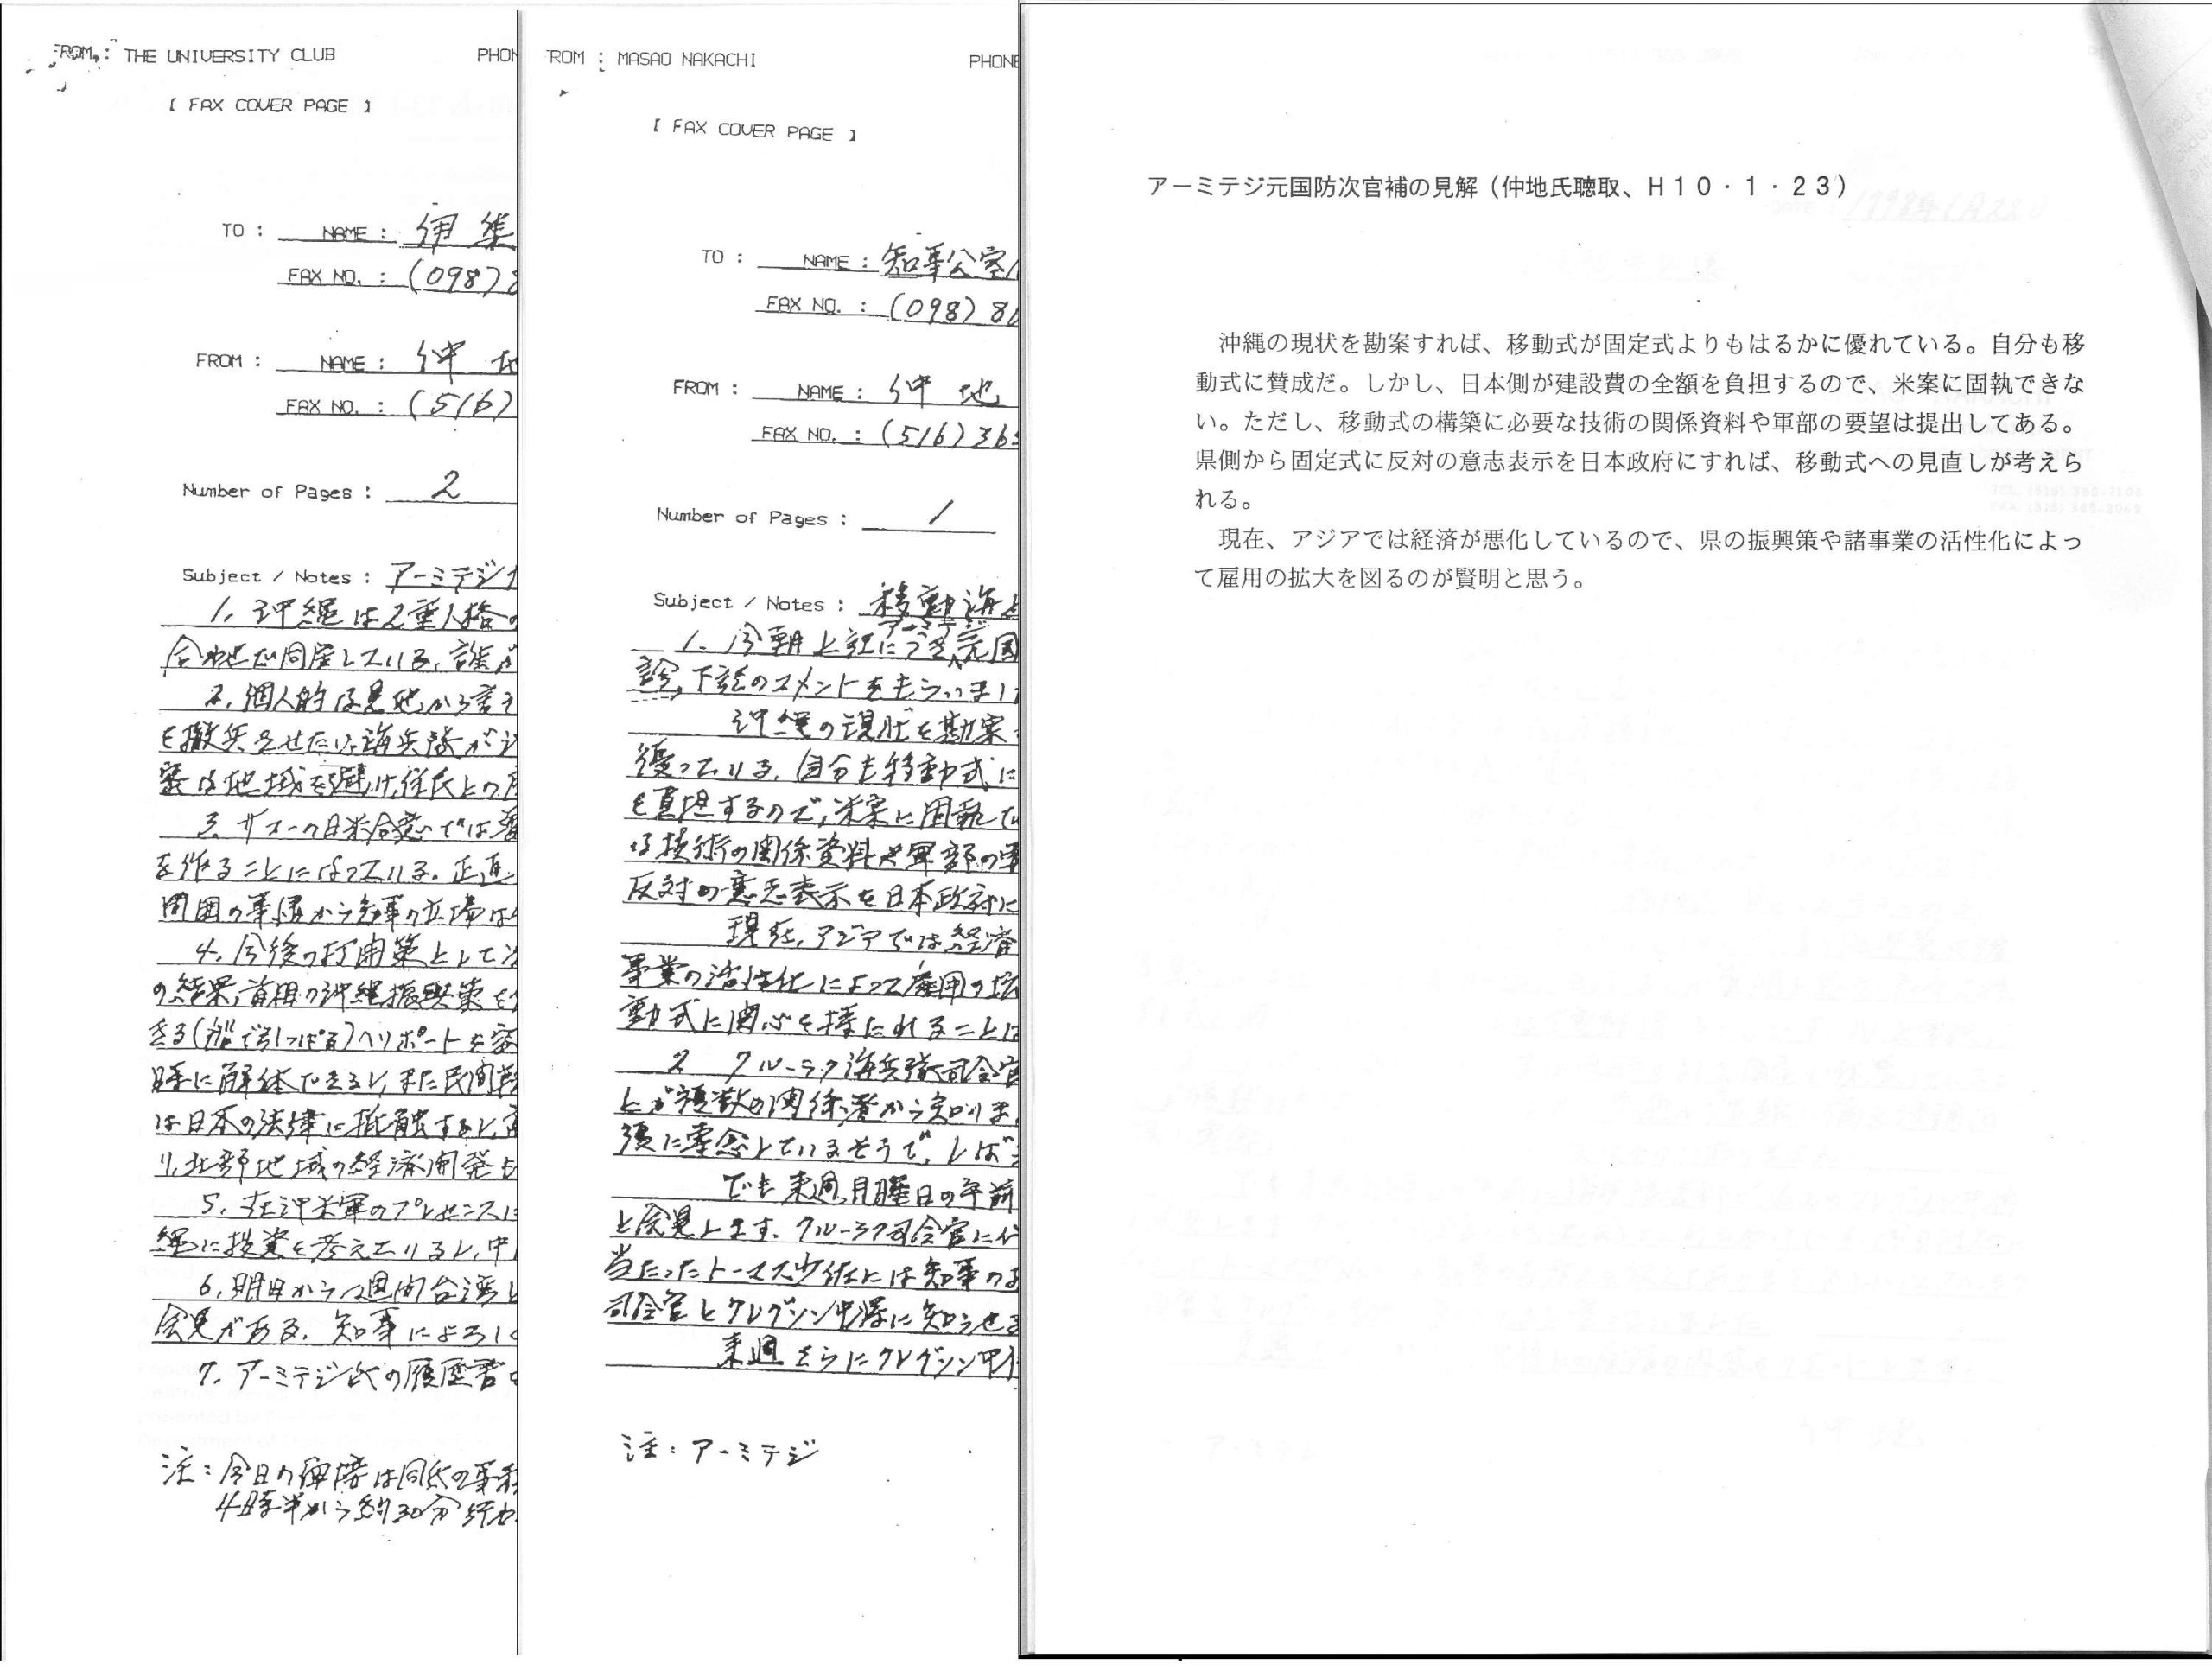 FROM : THE UNIVERSITY CLUB PHON
[ FAX COVER PAGE ]
TO : NAME : 伊集
FAX NO. : (098) 8
FROM : NAME : 仲地
FAX NO. : (516)
Number of Pages : 2
Subject / Notes : アーミテジ
1. 沖縄は2重人格の
合わせて同居している、誰が
2. 個人的な見地から言え
を撤兵させたい、海兵隊が
密な地域を避け、住民との
3. サコーの日米合意では
を作ることになっている。正直
周囲の事情から知事の立場は
4. 今後の打開策として
の結果、首相の沖縄振興策を
きる(船で引っぱる)ヘリポートを
時に解体できるし、また民間
は日本の法律に抵触すると、
り、北部地域の経済開発も
5. 在沖米軍のプレゼンスは
縄に投資を考えているし、中
6. 明日から2週間台湾と
会見がある。知事によろしく
7. アーミテジ氏の履歴書
注:今日の面接は同氏の事務
4時半から約30分行わ
ROM : MASAO NAKACHI PHONE
[ FAX COVER PAGE ]
TO : NAME : 知事公室
FAX NO. : (098) 8
FROM : NAME : 仲地
FAX NO. : (516) 365
Number of Pages : 1
Subject / Notes : 移動海上
アーミテジ
1. 今朝上記につき元国
談、下記のコメントをもらいまし
沖縄の現状を勘案
優っている。自分も移動式に
を負担するので、米案に固執で
な技術の関係資料や軍部の要
反対の意志表示を日本政府に
現在、アジアでは経済
事業の活性化によって雇用の拡
動式に関心を持たれることは
2 クルーラク海兵隊司令官
とが複数の関係者から知りま
でも来週月曜日の午前
と会見します。クルーラク司令官に
当たったトーマス少佐には知事の
司令官とクレグソン中将に知らせる
来週さらにクレグソン中
注:アーミテジ
アーミテジ元国防次官補の見解(仲地氏聴取、H10・1・23)
沖縄の現状を勘案すれば、移動式が固定式よりもはるかに優れている。自分も移
動式に賛成だ。しかし、日本側が建設費の全額を負担するので、米案に固執できな
い。ただし、移動式の構築に必要な技術の関係資料や軍部の要望は提出してある。
県側から固定式に反対の意志表示を日本政府にすれば、移動式への見直しが考えら
れる。
現在、アジアでは経済が悪化しているので、県の振興策や諸事業の活性化によっ
て雇用の拡大を図るのが賢明と思う。